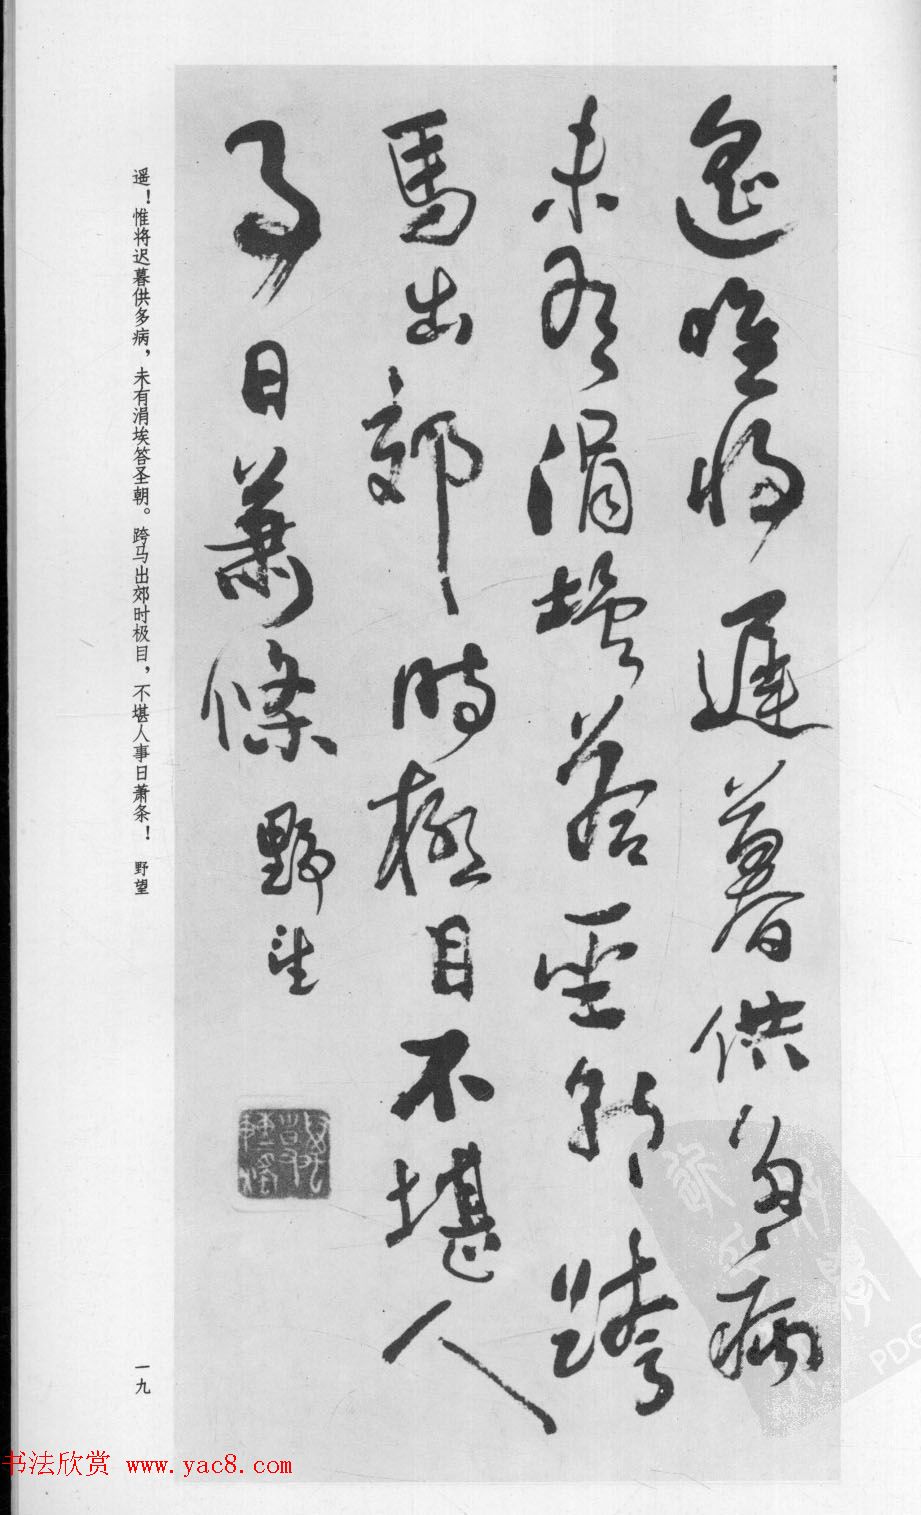 遥唯将遲暮供多病
未有涓埃答聖朝跨
馬出郊時極目不堪人
事日蕭條野望
遥！惟将迟暮供多病，未有涓埃答圣朝。跨马出郊时极目，不堪人事日萧条！ 野望
一九
书法欣赏 www.yac8.com
PDG